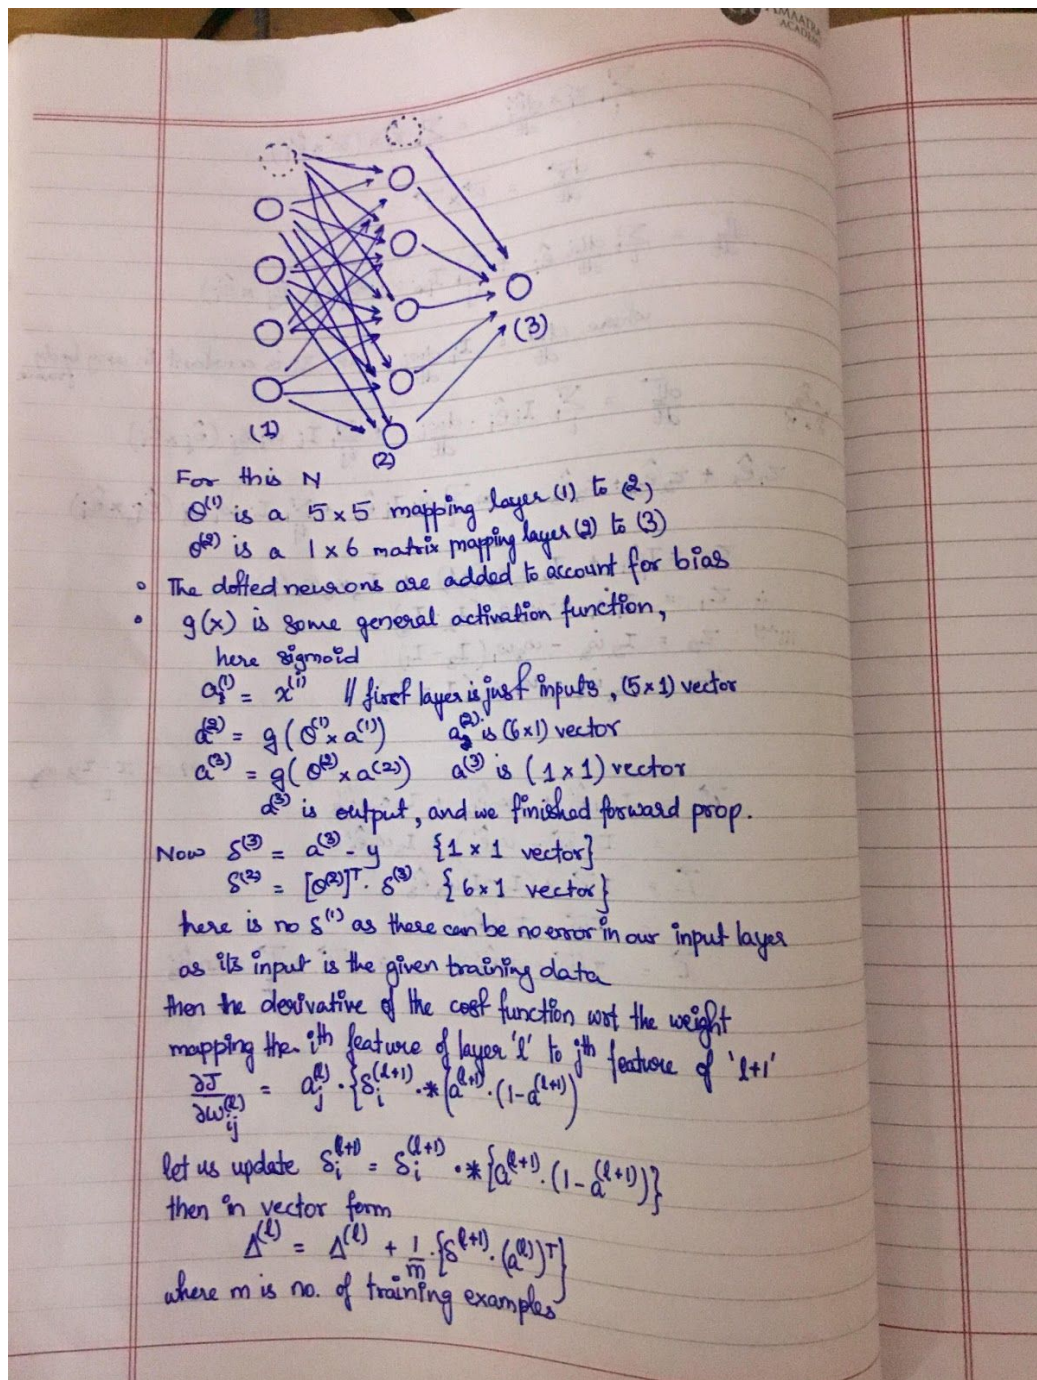 AMAATRA
ACADEMY
(3)
(1)
(2)
For this N
θ⁽¹⁾ is a 5×5 mapping layer (1) to (2)
θ⁽²⁾ is a 1×6 matrix mapping layer (2) to (3)
∘ The dotted neurons are added to account for bias
∘ g(x) is some general activation function,
here sigmoid
aⱼ⁽¹⁾ = x⁽ⁱ⁾ // first layer is just inputs, (5×1) vector
a⁽²⁾ = g(θ⁽¹⁾× a⁽¹⁾) a⁽²⁾ is (6×1) vector
a⁽³⁾ = g(θ⁽²⁾× a⁽²⁾) a⁽³⁾ is (1×1) vector
a⁽³⁾ is output, and we finished forward prop.
Now δ⁽³⁾ = a⁽³⁾ - y {1 × 1 vector}
δ⁽²⁾ = [θ⁽²⁾]ᵀ. δ⁽³⁾ {6×1 vector}
there is no δ⁽¹⁾ as there can be no error in our input layer
as its input is the given training data
then the derivative of the cost function wrt the weight
mapping the iᵗʰ feature of layer 'l' to jᵗʰ feature of 'l+1'
∂J/∂wᵢⱼ⁽ˡ⁾ = aⱼ⁽ˡ⁾ . {δᵢ⁽ˡ⁺¹⁾ .* (a⁽ˡ⁺¹⁾ . (1-a⁽ˡ⁺¹⁾)
let us update δᵢ⁽ˡ⁺¹⁾ = δᵢ⁽ˡ⁺¹⁾ .* {a⁽ˡ⁺¹⁾ . (1-a⁽ˡ⁺¹⁾)}
then in vector form
Δ⁽ˡ⁾ = Δ⁽ˡ⁾ + 1/m . {δ⁽ˡ⁺¹⁾ . (a⁽ˡ⁾)ᵀ}
where m is no. of training examples